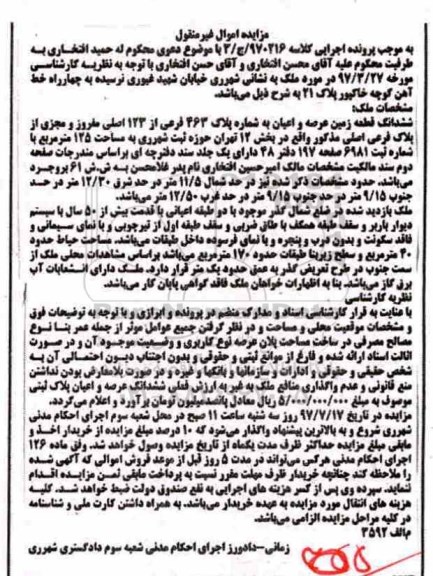 مزایده اموال غیرمنقول
به موجب پرونده اجرایی کلاسه ۹۷۰۲۱۶/ج/۳ با موضوع دعوی محکوم له حمید افتخاری به
طرفیت محکوم علیه آقای محسن افتخاری و آقای حسن افتخاری با توجه به نظریه کارشناسی
مورخه ۹۷/۳/۲۷ در مورد ملک به نشانی شهرری خیابان شهید غیوری نرسیده به چهارراه خط
آهن کوچه خاکپور پلاک ۲۱ به شرح ذیل می‌باشد.
مشخصات ملک:
ششدانگ قطعه زمین عرصه و اعیان به شماره پلاک ۴۶۳ فرعی از ۱۲۳ اصلی مفروز و مجزی از
پلاک فرعی اصلی مذکور واقع در بخش ۱۲ تهران حوزه ثبت شهرری به مساحت ۱۲۵ مترمربع با
شماره ثبت ۶۹۸۱ صفحه ۱۹۷ دفتر ۴۸ دارای یک جلد سند دفترچه ای براساس مندرجات صفحه
دوم سند مالکیت مشخصات مالک امیرحسین افتخاری نام پدر غلامحسن به ش.ش ۶۱ بروجرد
می‌باشد. حدود مشخصات ذکر شده نیز در حد شمال ۱۱/۵ متر در حد شرق ۱۲/۳۰ متر در حد
جنوب ۹/۱۵ متر در حد جنوب ۹/۱۵ متر در حد غرب ۱۲/۵۰ متر می‌باشد.
ملک بازدید شده در ضلع شمال گذر موجود با دو طبقه اعیانی با قدمت بیش از ۵۰ سال با سیستم
دیوار باربر و سقف طبقه همکف با طاق ضربی و سقف طبقه اول از تیرچوبی و با نمای سیمانی و
فاقد سکونت و بدون درب و پنجره و با نمای فرسوده داخل طبقات می‌باشد. مساحت حیاط حدود
۴۰ مترمربع و سطح زیربنا طبقات حدود ۱۷۰ مترمربع می‌باشد براساس مشاهدات محلی ملک از
سمت جنوب در طرح تعریض گذر به عمق حدود یک متر قرار دارد. ملک دارای انشعابات آب
برق گاز می‌باشد. بنا به اظهارات خواهان ملک فاقد گواهی پایان کار می‌باشد.
نظریه کارشناسی
با عنایت به قرار کارشناسی اسناد و مدارک منضم در پرونده و ابرازی و با توجه به توضیحات فوق
و مشخصات موقعیت محلی و مساحت و در نظر گرفتن جمیع عوامل موثر از جمله عمر بنا نوع
مصالح مصرفی در ساخت مساحت پلان عرصه نوع کاربری و وضعیت موجود آن و در صورت
اثالت اسناد ارائه شده و فارغ از موانع ثبتی و حقوقی و بدون اجتناب دیون احتمالی آن به
شخص حقیقی و حقوقی و ادارات و سازمانها و بانکها و غیره و درصورت بلامعارض بودن نداشتن
منع قانونی و عدم واگذاری منافع ملک به غیر به ارزش فعلی ششدانگ عرصه و اعیان پلاک ثبتی
موصوف به مبلغ ۵/۰۰۰/۰۰۰/۰۰۰ ریال معادل پانصدمیلیون تومان برآورد و اعلام می‌گردد.
مزایده در تاریخ ۹۷/۷/۱۷ روز سه شنبه ساعت ۱۱ صبح در محل شعبه سوم اجرای احکام مدنی
شهرری شروع و به بالاترین پیشنهاد واگذار می‌شود که ۱۰ درصد مبلغ مزایده از خریدار اخذ و
مابقی مبلغ مزایده حداکثر ظرف مدت یکماه از تاریخ مزایده وصول خواهد شد. وفق ماده ۱۲۶
اجرای احکام مدنی هرکس می‌تواند در مدت ۵ روز قبل از موعد فروش اموالی که آگهی شده
را ملاحظه کند چنانچه خریدار ظرف مهلت مقرر نسبت به پرداخت مابقی ثمن مزایده اقدام
ننماید. سپرده وی پس از کسر هزینه های اجرایی به نفع صندوق دولت ضبط خواهد شد. کلیه
هزینه های انتقال مورد مزایده به عهده خریدار می‌باشد. به همراه داشتن کارت ملی و شناسنامه
در کلیه مراحل مزایده الزامی می‌باشد.
م‌الف ۳۵۹۲
زمانی-دادورز اجرای احکام مدنی شعبه سوم دادگستری شهرری